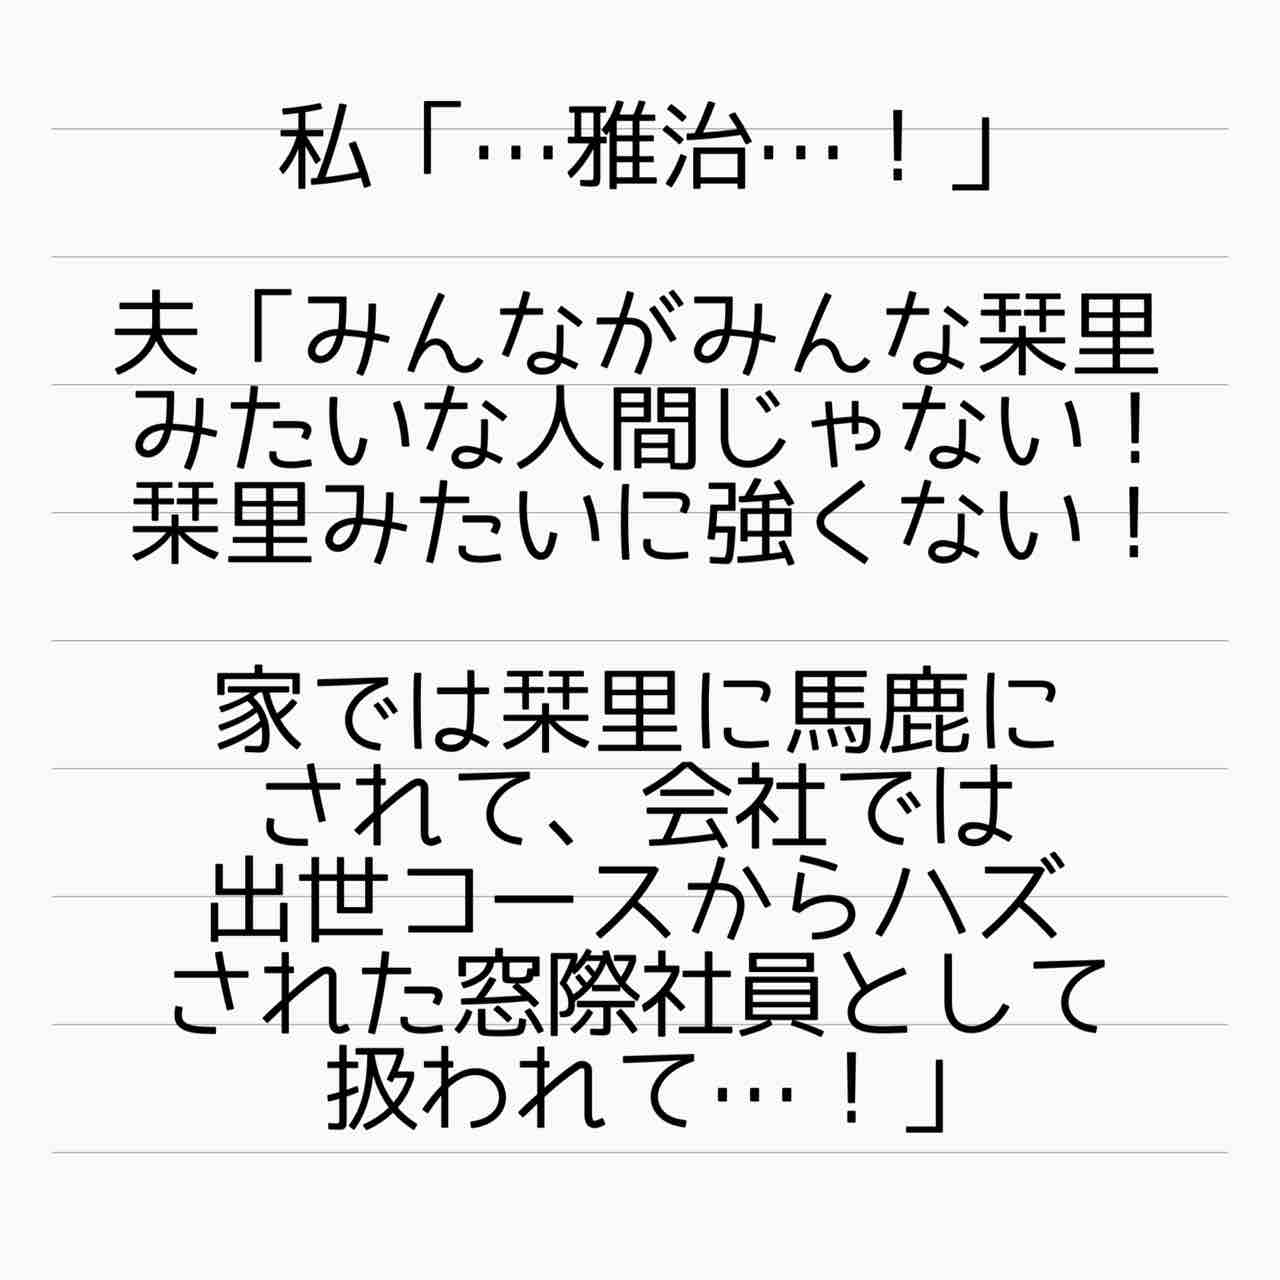 私「…雅治…！」
夫「みんながみんな栞里
みたいな人間じゃない！
栞里みたいに強くない！
家では栞里に馬鹿に
されて、会社では
出世コースからハズ
された窓際社員として
扱われて…！」